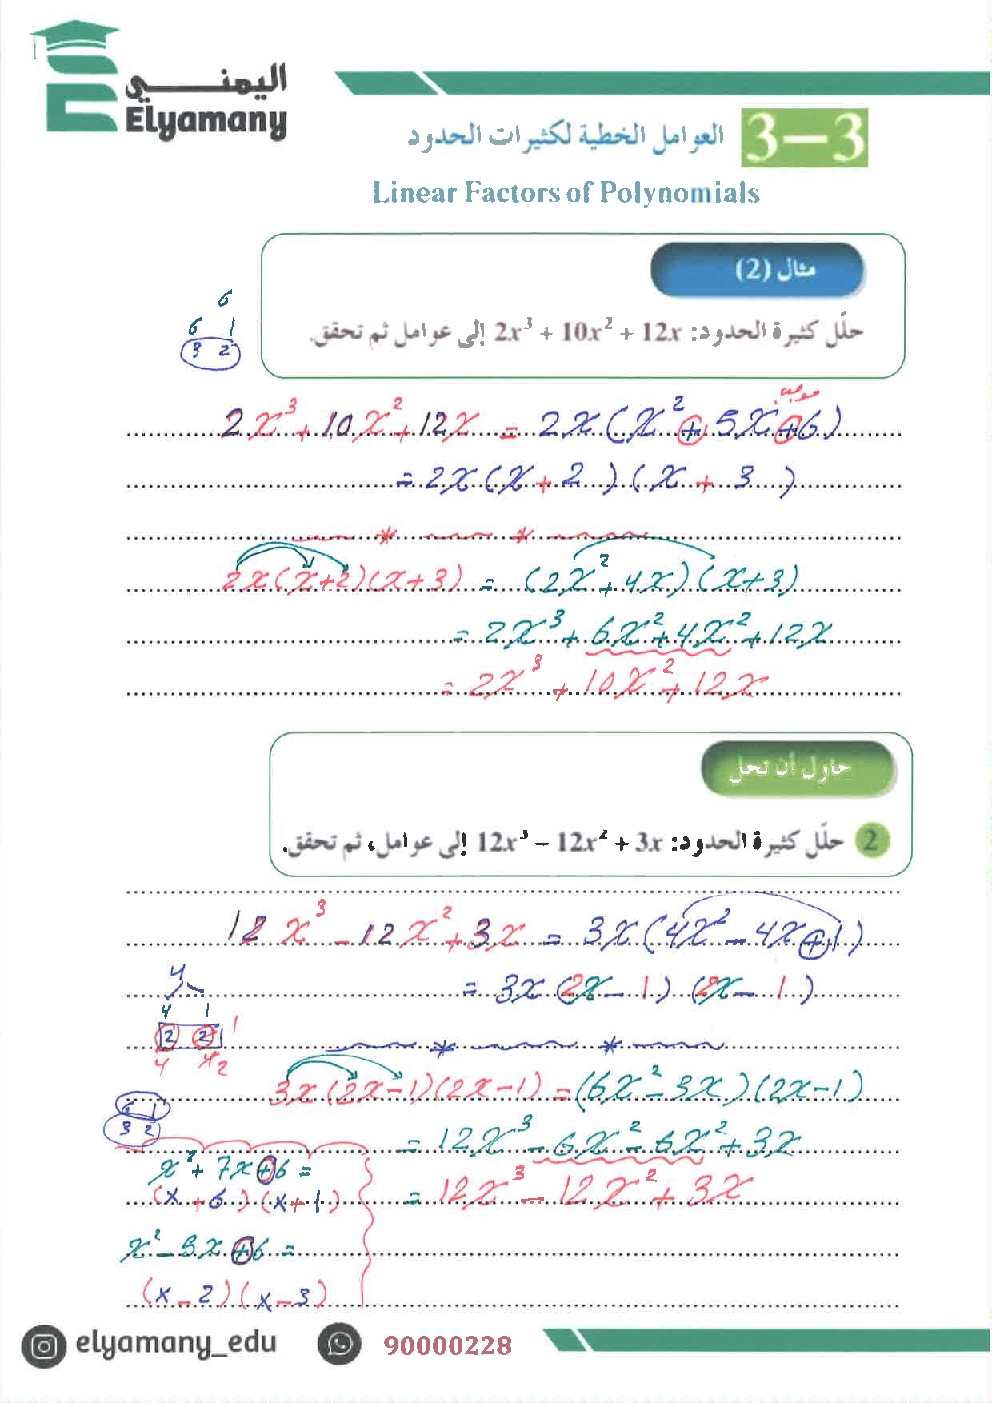 اليمني
Elyamany
3-3 العوامل الخطية لكثيرات الحدود
Linear Factors of Polynomials
مثال (2)
حلّل كثيرة الحدود: 2x³ + 10x² + 12x إلى عوامل ثم تحقق.
6
6 1
3 2
2x³ + 10x² + 12x = 2x(x² + 5x + 6)
= 2x(x + 2)(x + 3)
2x(x+2)(x+3) = (2x² + 4x)(x+3)
= 2x³ + 6x² + 4x² + 12x
= 2x³ + 10x² + 12x
حاول أن تحل
2 حلّل كثيرة الحدود: 12x³ − 12x² + 3x إلى عوامل، ثم تحقق.
12x³ − 12x² + 3x = 3x(4x² − 4x + 1)
= 3x(2x − 1)(2x − 1)
4
4 1
2 2 1
3x(2x−1)(2x−1) = (6x² − 3x)(2x−1)
6 1
3 2
= 12x³ − 6x² − 6x² + 3x
x² + 7x + 6 =
(x + 6)(x + 1)
= 12x³ − 12x² + 3x
x² − 5x + 6 =
(x − 2)(x − 3)
elyamany_edu 90000228